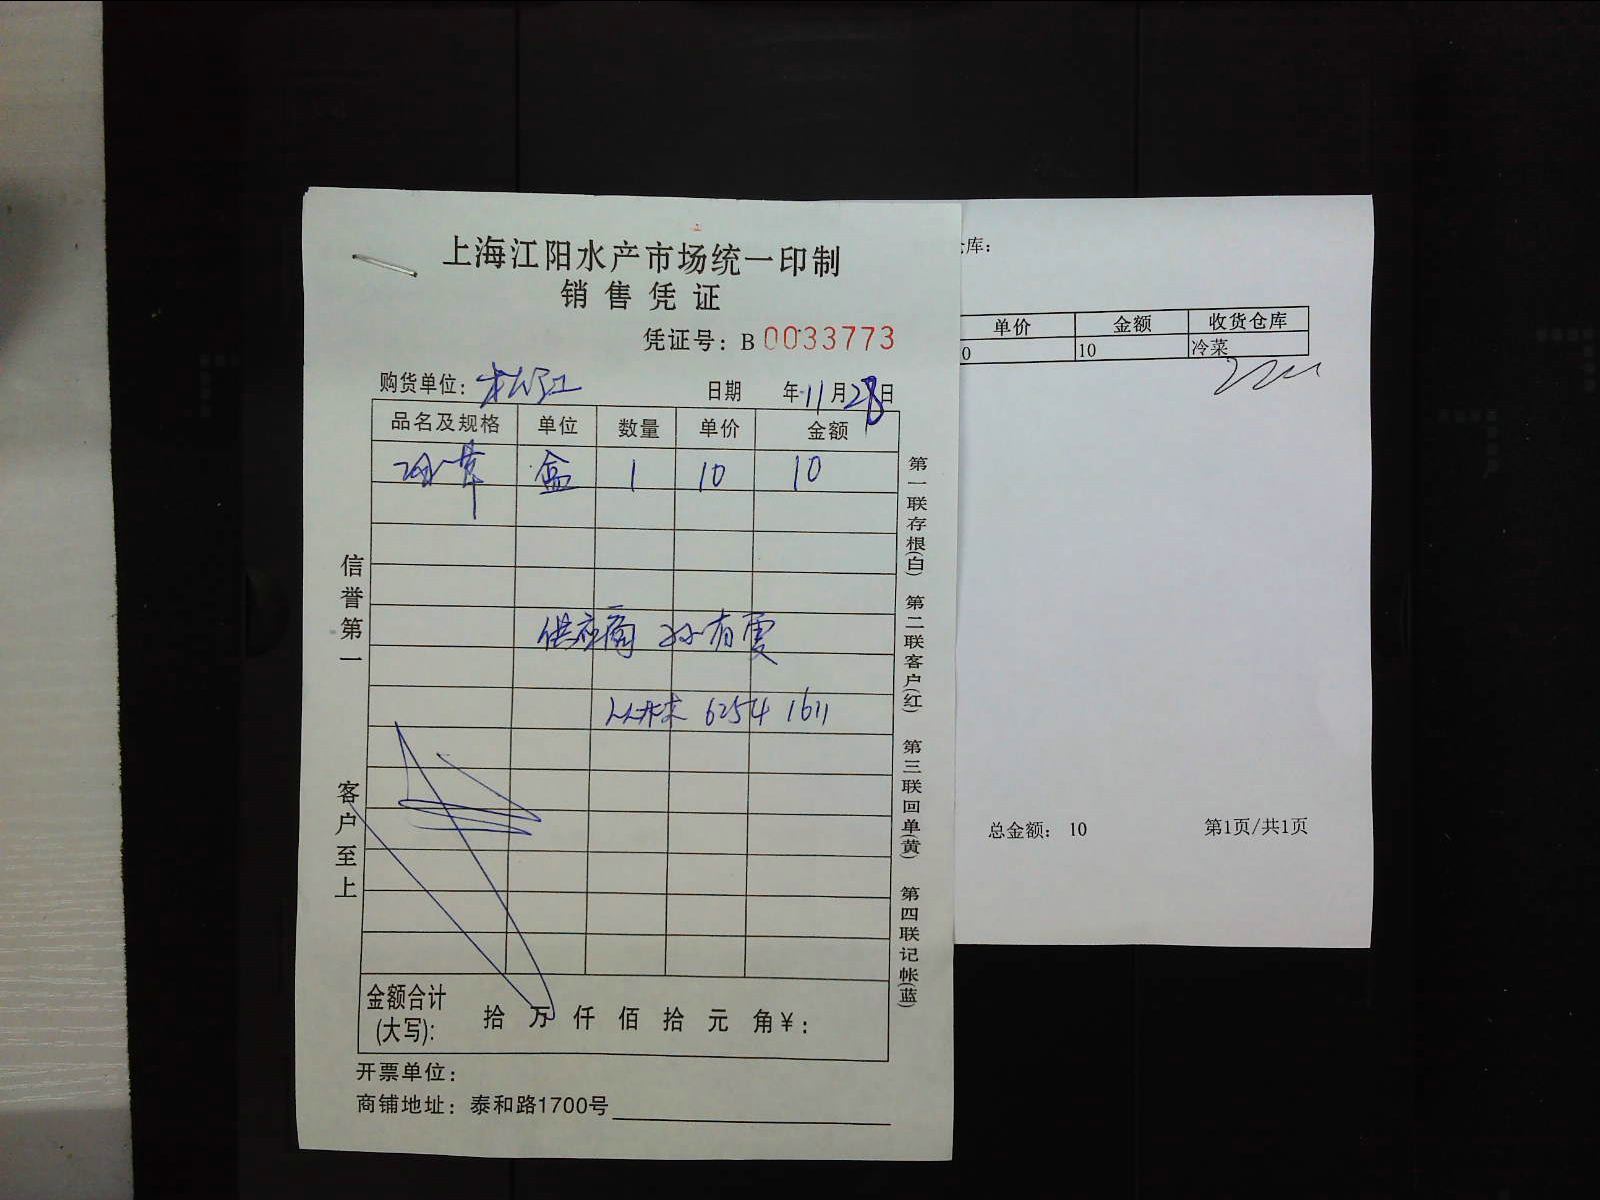 上海江阳水产市场统一印制
销售凭证
凭证号：B 0033773
购货单位：松江 日期 年 11月28日
品名及规格 单位 数量 单价 金额
盒 1 10 10
供应商 孙有霞
6254 1611
金额合计(大写): 拾 万 仟 佰 拾 元 角 ¥：
开票单位：
商铺地址：泰和路1700号
信誉第一
客户至上
第一联存根(白) 第二联客户(红) 第三联回单(黄) 第四联记帐(蓝)
库：
单价 金额 收货仓库
0 10 冷菜
总金额： 10 第1页/共1页